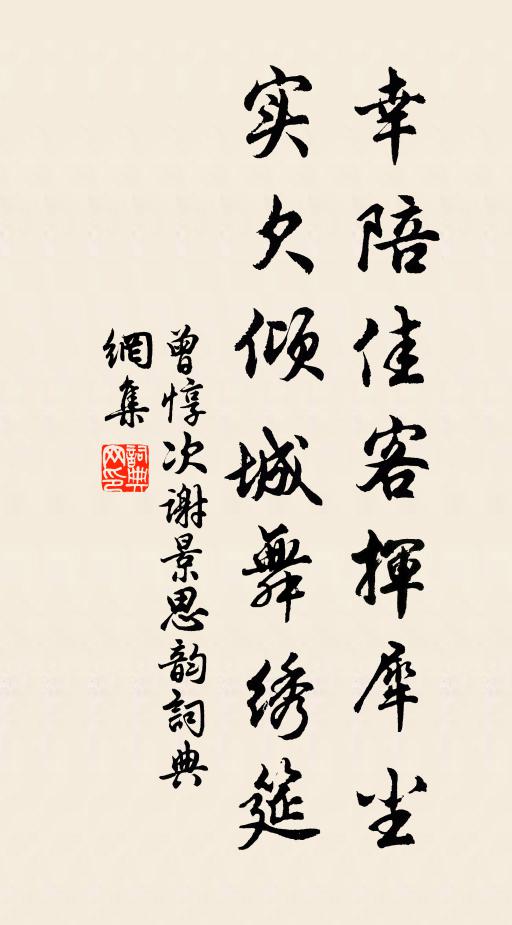 幸陪佳客揮犀尘
实欠倾城舞绣筵
曾惇次谢景思韵詞典
網集
詞典网印